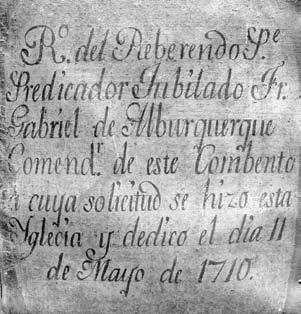 R.º del Reberendo S.Pe
Predicador Jubilado Fr.
Gabriel de Alburquerque
Comend.r de este Combento
a cuya solicitud se hizo esta
Yglecia y dedico el dia 11
de Mayo de 1710.